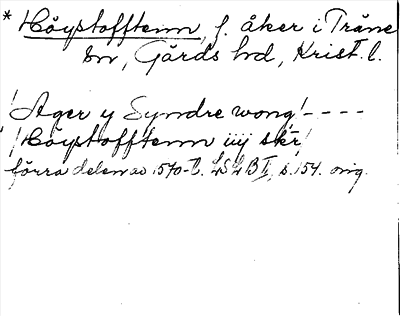 * Höystofftenn, f. åker i Träne
sn, Gärds hd, Krist. l.
! Ager y Syndre wong! - - - -
! Höystofftenn iiij skr!
förra delen av 1570-t. LSLB II, s. 154. orig.